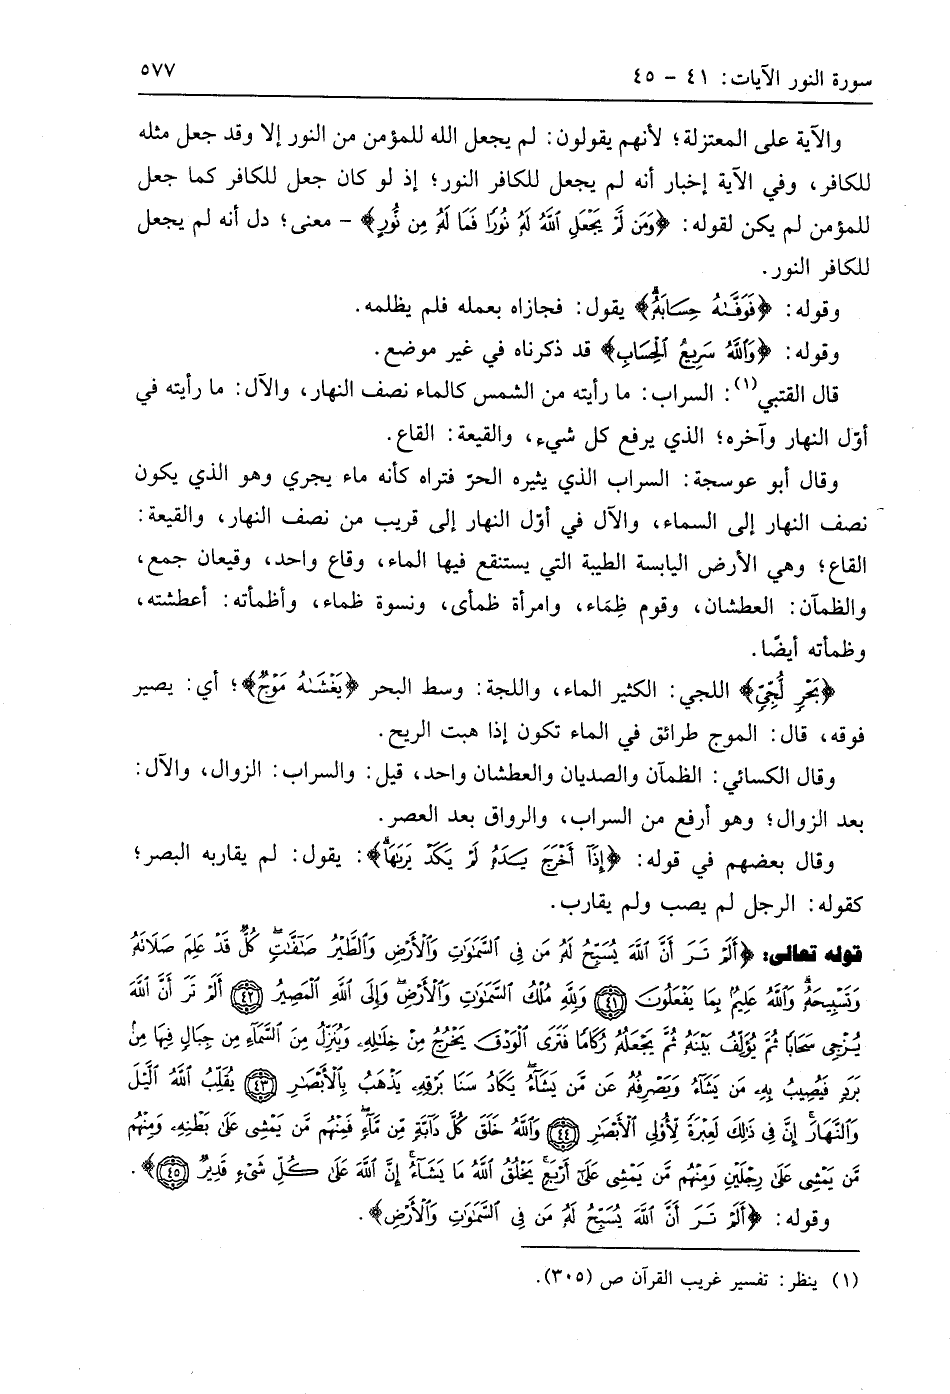 سورة النور الآيات: ٤١ - ٤٥
٥٧٧
والآية على المعتزلة؛ لأنهم يقولون: لم يجعل الله للمؤمن من النور إلا وقد جعل مثله
للكافر، وفي الآية إخبار أنه لم يجعل للكافر النور؛ إذ لو كان جعل للكافر كما جعل
للمؤمن لم يكن لقوله: ﴿وَمَن لَّمْ يَجْعَلِ ٱللَّهُ لَهُۥ نُورًا فَمَا لَهُۥ مِن نُّورٍ﴾ - معنى؛ دل أنه لم يجعل
للكافر النور.
وقوله: ﴿فَوَفَّىٰهُ حِسَابَهُۥۗ﴾ يقول: فجازاه بعمله فلم يظلمه.
وقوله: ﴿وَٱللَّهُ سَرِيعُ ٱلْحِسَابِ﴾ قد ذكرناه في غير موضع.
قال القتبي(١): السراب: ما رأيته من الشمس كالماء نصف النهار، والآل: ما رأيته في
أوّل النهار وآخره؛ الذي يرفع كل شيء، والقيعة: القاع.
وقال أبو عوسجة: السراب الذي يثيره الحرّ فتراه كأنه ماء يجري وهو الذي يكون
نصف النهار إلى السماء، والآل في أوّل النهار إلى قريب من نصف النهار، والقيعة:
القاع؛ وهي الأرض اليابسة الطيبة التي يستنقع فيها الماء، وقاع واحد، وقيعان جمع،
والظمآن: العطشان، وقوم ظِمَاء، وامرأة ظمأى، ونسوة ظماء، وأظمأته: أعطشته،
وظمأته أيضًا.
﴿بَحْرٍ لُّجِّىٍّ﴾ اللجي: الكثير الماء، واللجة: وسط البحر ﴿يَغْشَىٰهُ مَوْجٌ﴾؛ أي: يصير
فوقه، قال: الموج طرائق في الماء تكون إذا هبت الريح.
وقال الكسائي: الظمآن والصديان والعطشان واحد، قيل: والسراب: الزوال، والآل:
بعد الزوال؛ وهو أرفع من السراب، والرواق بعد العصر.
وقال بعضهم في قوله: ﴿إِذَآ أَخْرَجَ يَدَهُۥ لَمْ يَكَدْ يَرَىٰهَاۗ﴾: يقول: لم يقاربه البصر؛
كقوله: الرجل لم يصب ولم يقارب.
قوله تعالى: ﴿أَلَمْ تَرَ أَنَّ ٱللَّهَ يُسَبِّحُ لَهُۥ مَن فِى ٱلسَّمَٰوَٰتِ وَٱلْأَرْضِ وَٱلطَّيْرُ صَٰٓفَّٰتٍۖ كُلٌّ قَدْ عَلِمَ صَلَاتَهُۥ
وَتَسْبِيحَهُۥۗ وَٱللَّهُ عَلِيمٌۢ بِمَا يَفْعَلُونَ (٤١) وَلِلَّهِ مُلْكُ ٱلسَّمَٰوَٰتِ وَٱلْأَرْضِۖ وَإِلَى ٱللَّهِ ٱلْمَصِيرُ (٤٢) أَلَمْ تَرَ أَنَّ ٱللَّهَ
يُزْجِى سَحَابًا ثُمَّ يُؤَلِّفُ بَيْنَهُۥ ثُمَّ يَجْعَلُهُۥ رُكَامًا فَتَرَى ٱلْوَدْقَ يَخْرُجُ مِنْ خِلَٰلِهِۦ وَيُنَزِّلُ مِنَ ٱلسَّمَآءِ مِن جِبَالٍ فِيهَا مِنۢ
بَرَدٍ فَيُصِيبُ بِهِۦ مَن يَشَآءُ وَيَصْرِفُهُۥ عَن مَّن يَشَآءُۖ يَكَادُ سَنَا بَرْقِهِۦ يَذْهَبُ بِٱلْأَبْصَٰرِ (٤٣) يُقَلِّبُ ٱللَّهُ ٱلَّيْلَ
وَٱلنَّهَارَۚ إِنَّ فِى ذَٰلِكَ لَعِبْرَةً لِّأُو۟لِى ٱلْأَبْصَٰرِ (٤٤) وَٱللَّهُ خَلَقَ كُلَّ دَآبَّةٍ مِّن مَّآءٍۖ فَمِنْهُم مَّن يَمْشِى عَلَىٰ بَطْنِهِۦ وَمِنْهُم
مَّن يَمْشِى عَلَىٰ رِجْلَيْنِ وَمِنْهُم مَّن يَمْشِى عَلَىٰٓ أَرْبَعٍۚ يَخْلُقُ ٱللَّهُ مَا يَشَآءُۚ إِنَّ ٱللَّهَ عَلَىٰ كُلِّ شَىْءٍ قَدِيرٌ (٤٥)﴾.
وقوله: ﴿أَلَمْ تَرَ أَنَّ ٱللَّهَ يُسَبِّحُ لَهُۥ مَن فِى ٱلسَّمَٰوَٰتِ وَٱلْأَرْضِ﴾.
(١) ينظر: تفسير غريب القرآن ص (٣٠٥).